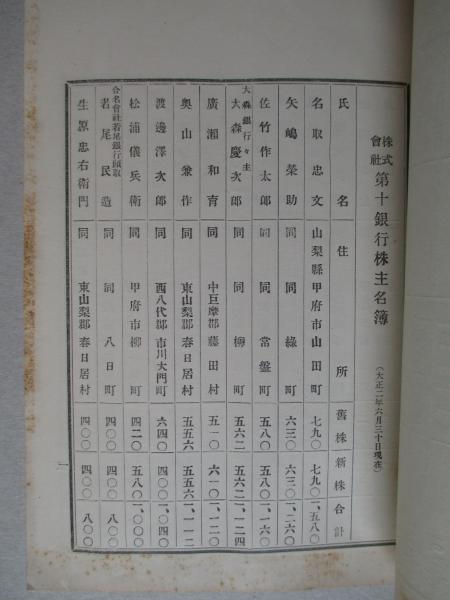 株式會社第十銀行株主名簿（大正二年六月三十日現在）
氏名 住所 舊株 新株 合計
名取忠文 山梨縣甲府市山田町 七九〇 七九〇 一、五八〇
矢嶋榮助 同 同 綠町 六三〇 六三〇 一、二六〇
佐竹作太郎 同 同 常盤町 五八〇 五八〇 一、一六〇
大森銀行々主 大森慶次郎 同 同 柳町 五六二 五六二 一、一二四
廣瀬和育 同 中巨摩郡藤田村 五一〇 六一〇 一、一二〇
奥山兼作 同 東山梨郡春日居村 五五六 五五六 一、一一二
渡邊澤次郎 同 西八代郡市川大門町 六四〇 四〇〇 一、〇四〇
松浦儀兵衛 同 甲府市柳町 四二〇 五八〇 一、〇〇〇
合名會社若尾銀行頭取 若尾民造 同 同 八日町 四〇〇 四〇〇 八〇〇
生原忠右衛門 同 東山梨郡春日居村 四〇〇 四〇〇 八〇〇
一